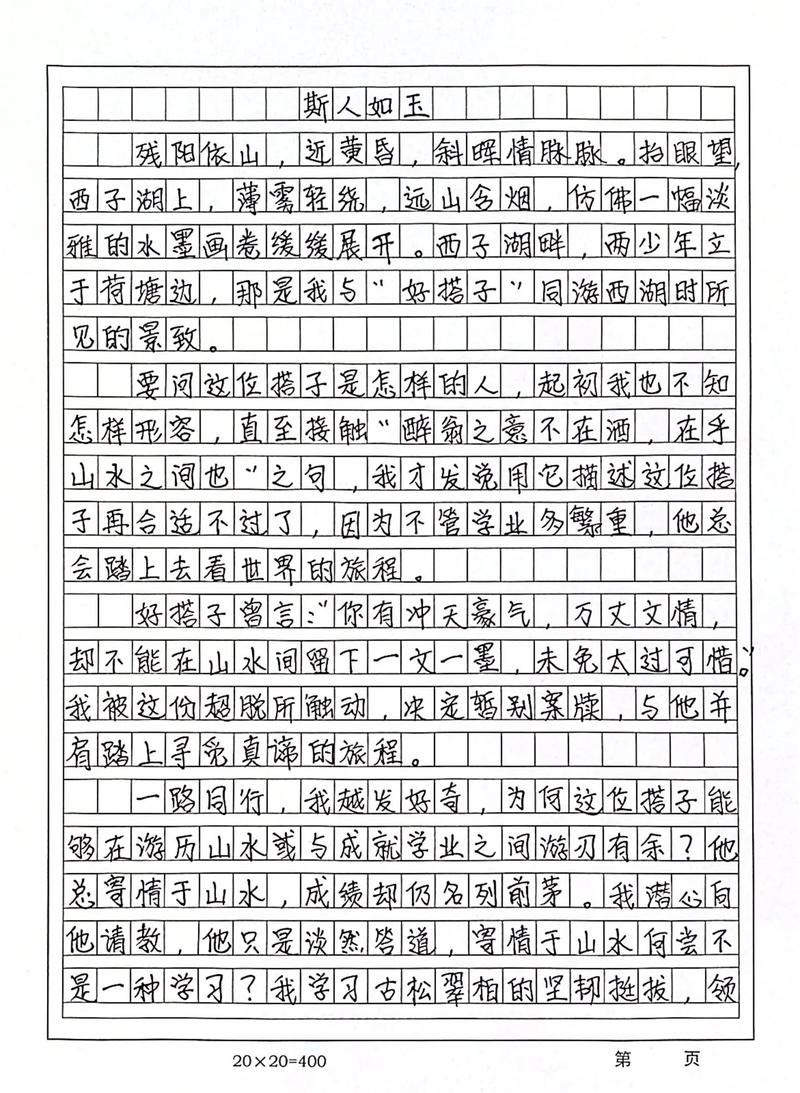 斯人如玉
残阳依山，近黄昏，斜晖情脉脉。抬眼望，
西子湖上，薄雾轻绕，远山含烟，仿佛一幅淡
雅的水墨画卷缓缓展开。西子湖畔，两少年立
于荷塘边，那是我与“好搭子”同游西湖时所
见的景致。
要问这位搭子是怎样的人，起初我也不知
怎样形容，直至接触“醉翁之意不在酒，在乎
山水之间也”之句，我才发觉用它描述这位搭
子再合适不过了，因为不管学业多繁重，他总
会踏上去看世界的旅程。
好搭子曾言：“你有冲天豪气，万丈文情，
却不能在山水间留下一文一墨，未免太过可惜。”
我被这份超脱所触动，决定暂别案牍，与他并
肩踏上寻觅真谛的旅程。
一路同行，我越发好奇，为何这位搭子能
够在游历山水或与成就学业之间游刃有余？他
总寄情于山水，成绩却仍名列前茅。我潜心向
他请教，他只是淡然答道，寄情于山水何尝不
是一种学习？我学习古松翠柏的坚韧挺拔，领
20×20=400
第 页